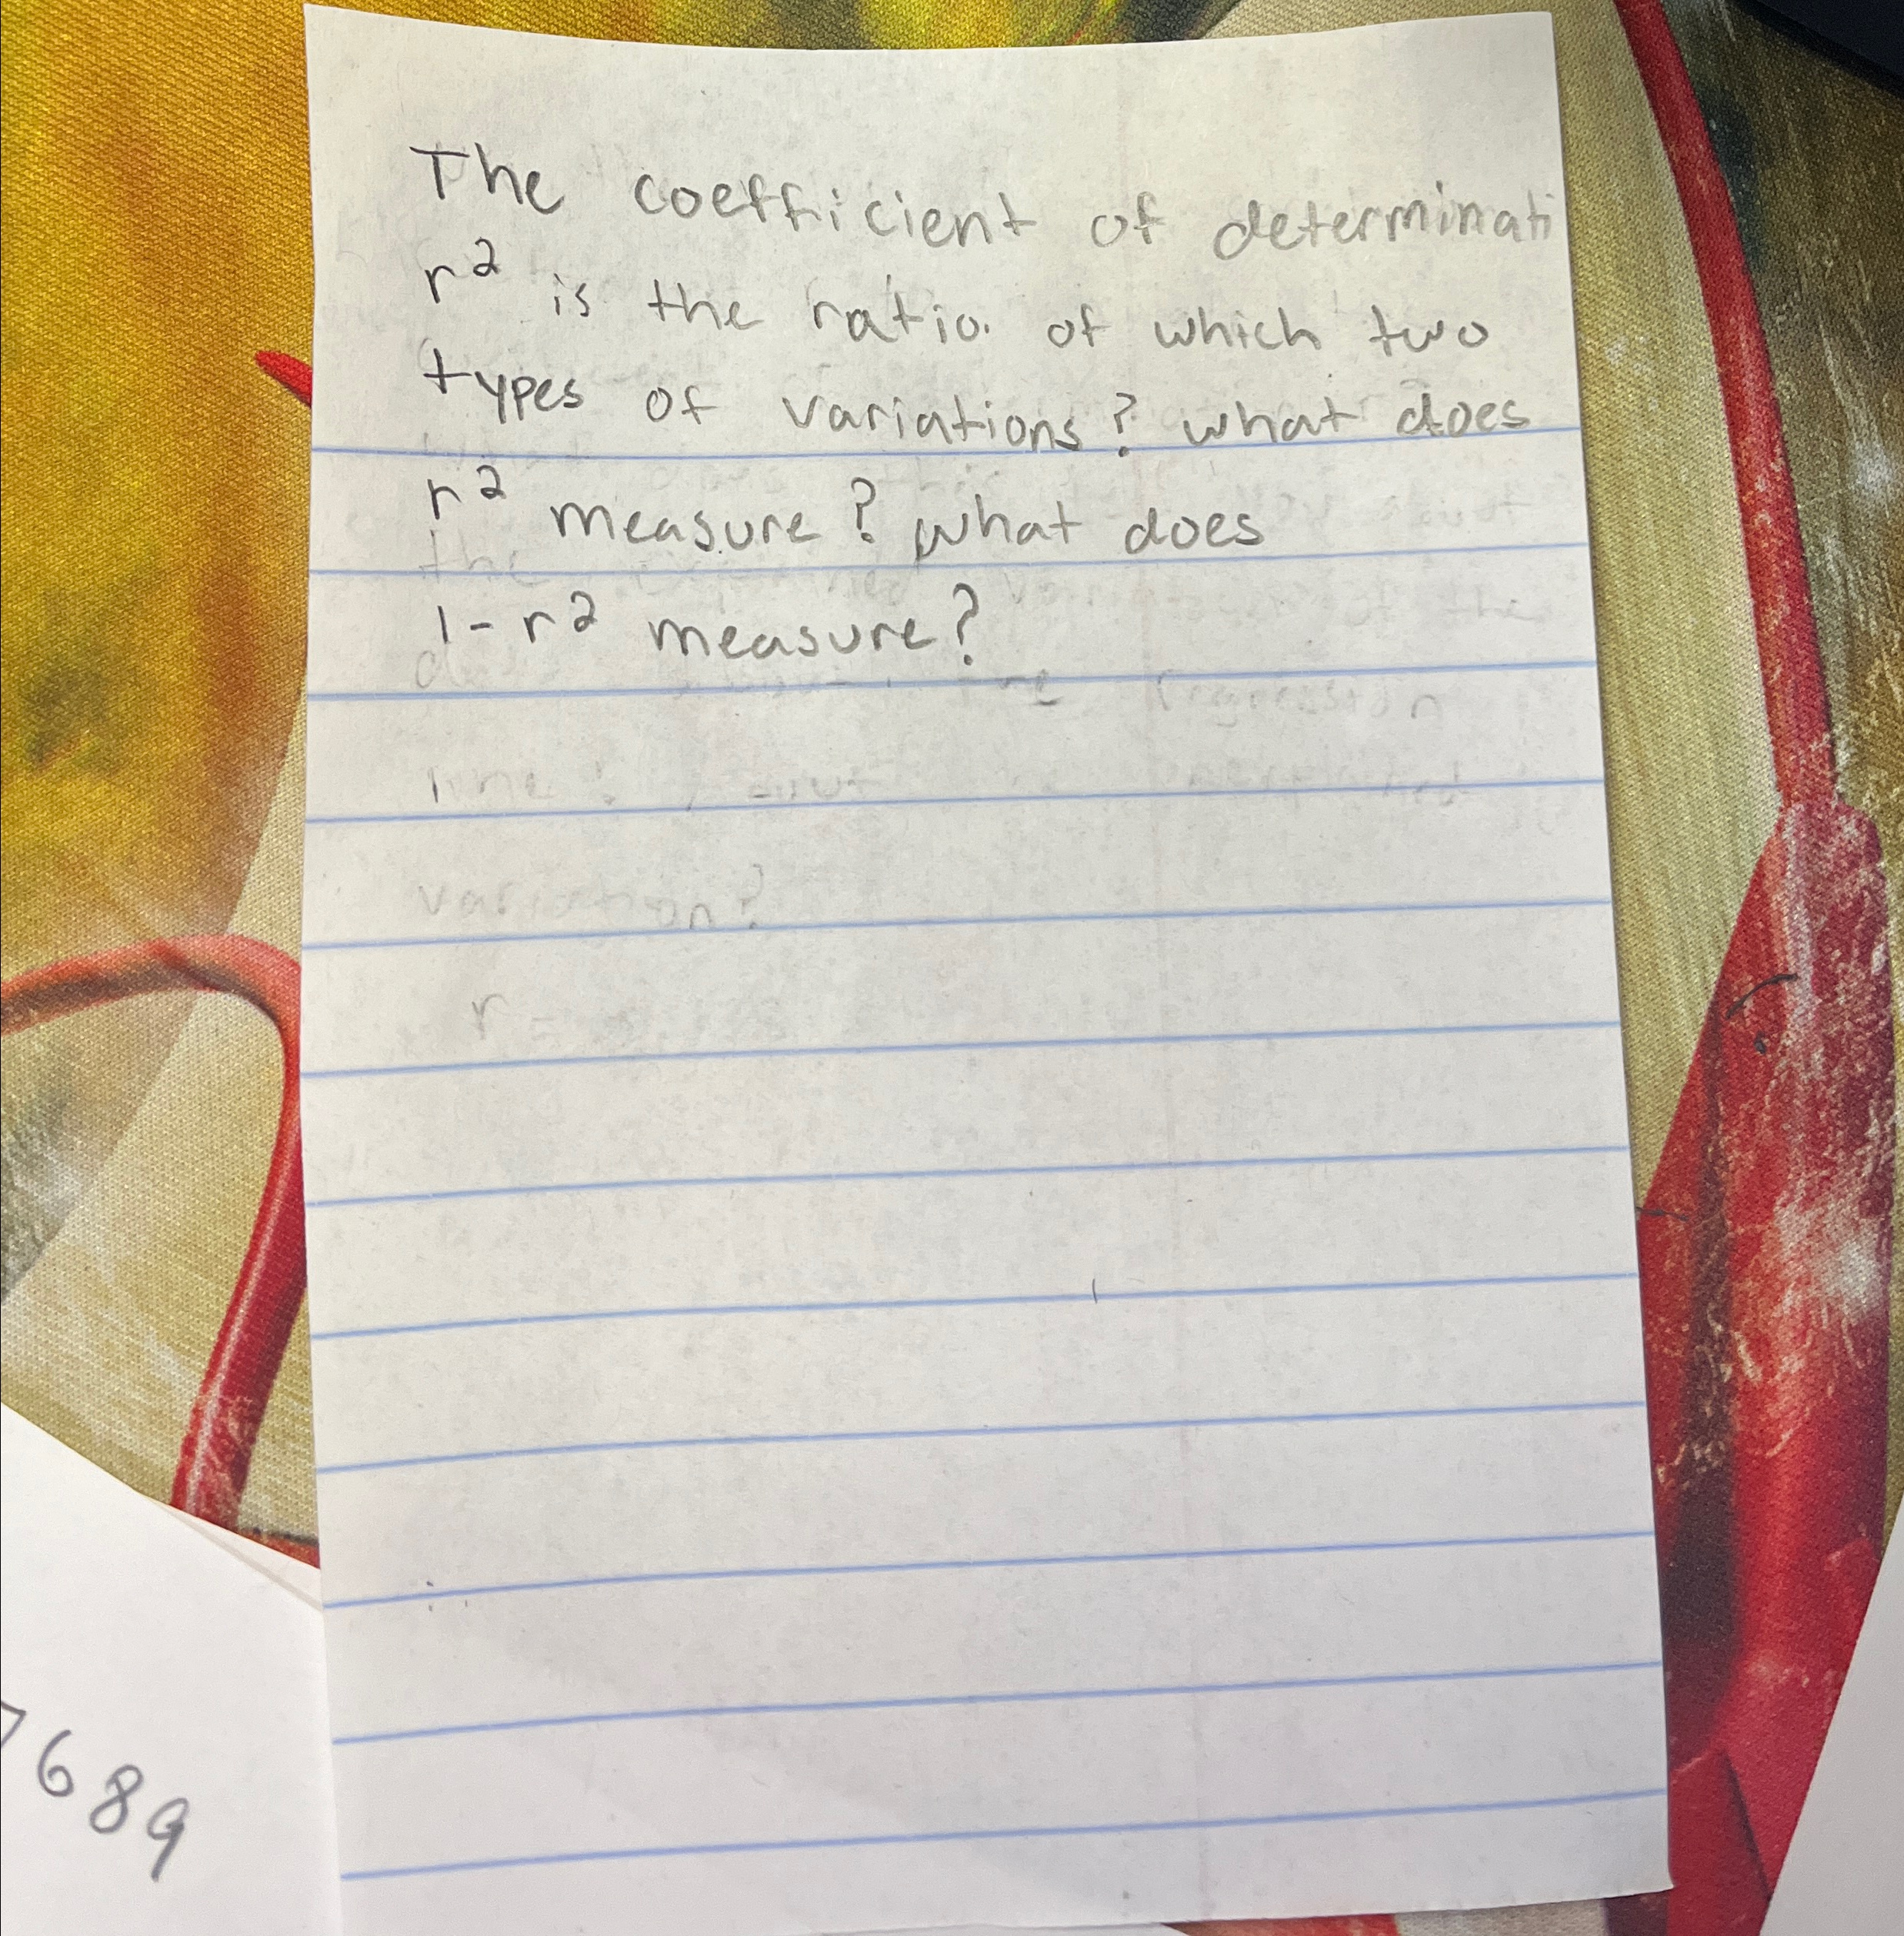 The coefficient of determinati
r² is the ratio of which two
types of variations? what does
r² measure? what does
1-r² measure?
regression
line
variation?
r =
7689